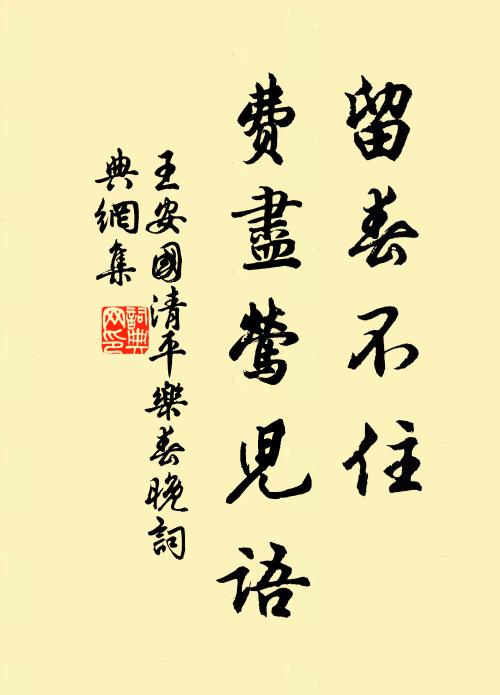 留春不住
費盡鶯兒語
王安國清平樂春晚詞
典網集
詞典
网印